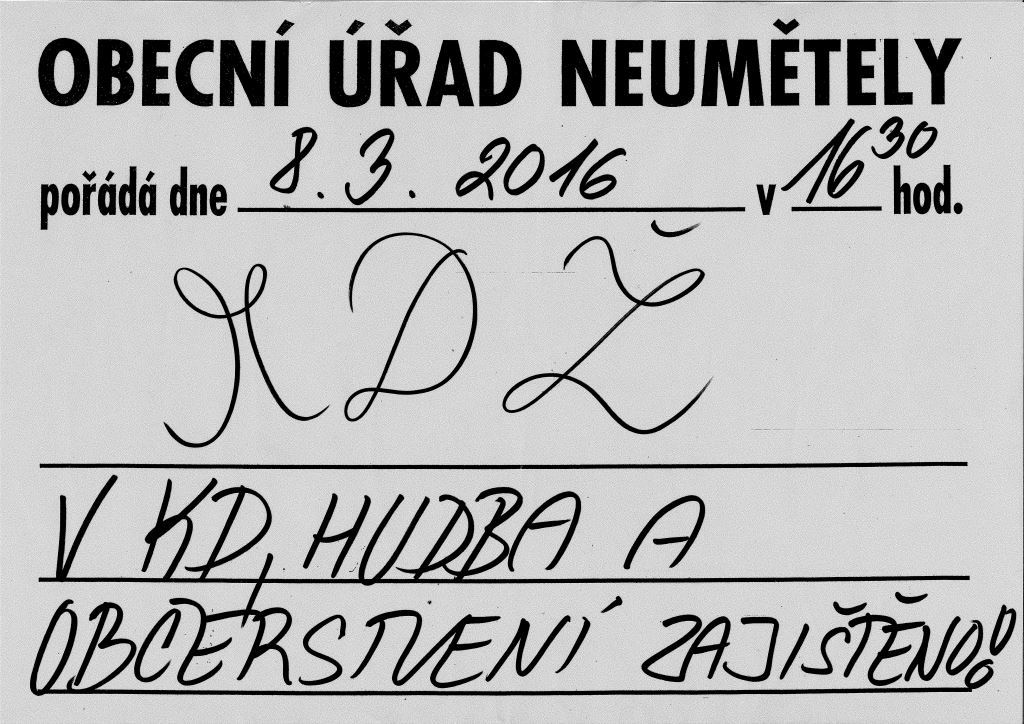 OBECNÍ ÚŘAD NEUMĚTELY
pořádá dne 8.3.2016 v 16³⁰ hod.
MDŽ
V KD, HUDBA A
OBČERSTVENÍ ZAJIŠTĚNO!